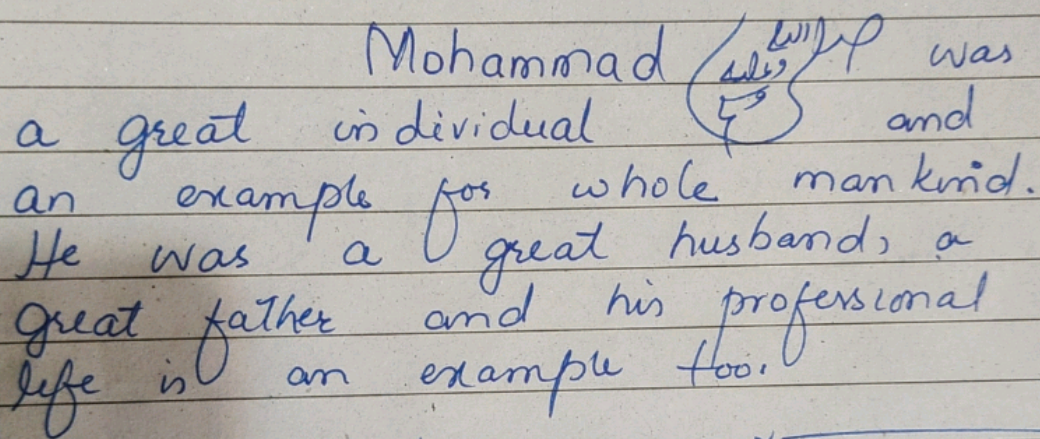 Mohammad ﷺ was
a great individual and
an example for whole mankind.
He was a great husband, a
great father and his professional
life is an example too.